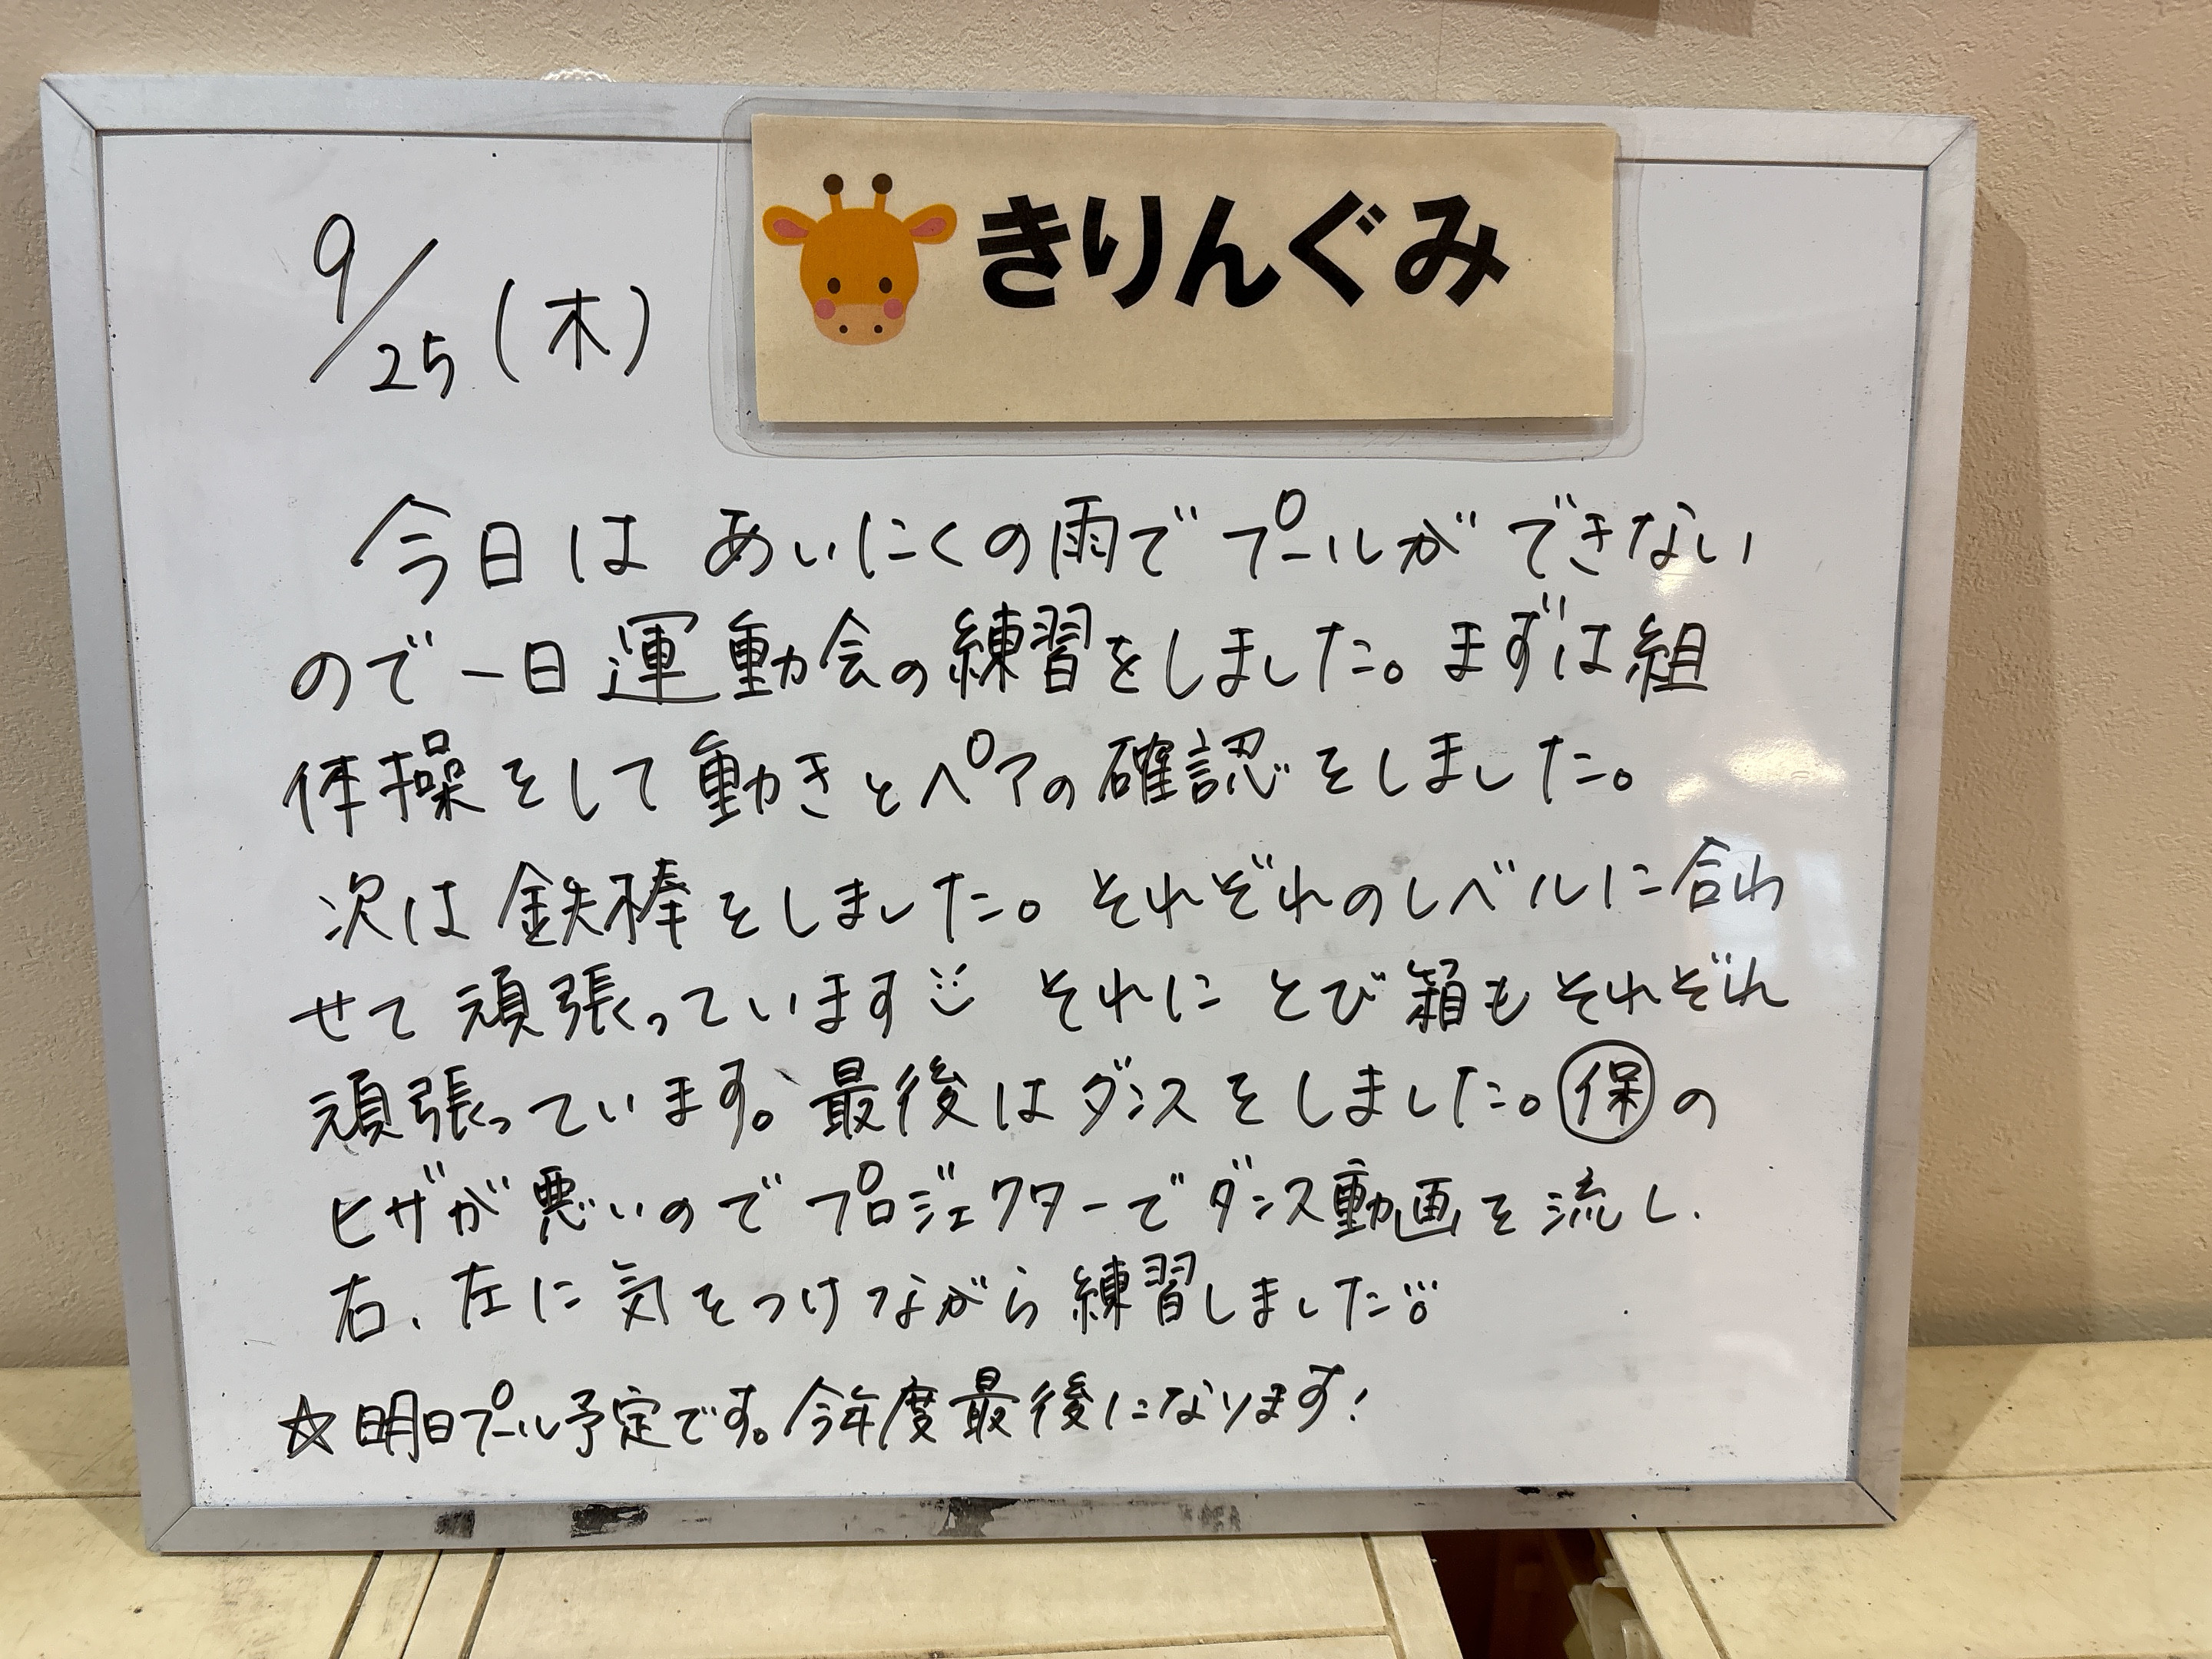 きりんぐみ
9/25(木)
今日は あいにくの雨で プールが できない
ので 一日 運動会の練習をしました。まずは組
体操をして 動きとペアの確認をしました。
次は 鉄棒をしました。それぞれのレベルに合わ
せて 頑張っています それに とび箱もそれぞれ
頑張っています。最後はダンスをしました。保の
ヒザが悪いので プロジェクターで ダンス動画を流し、
右、左に気をつけながら練習しました。
☆明日プール予定です。今年度最後になります!